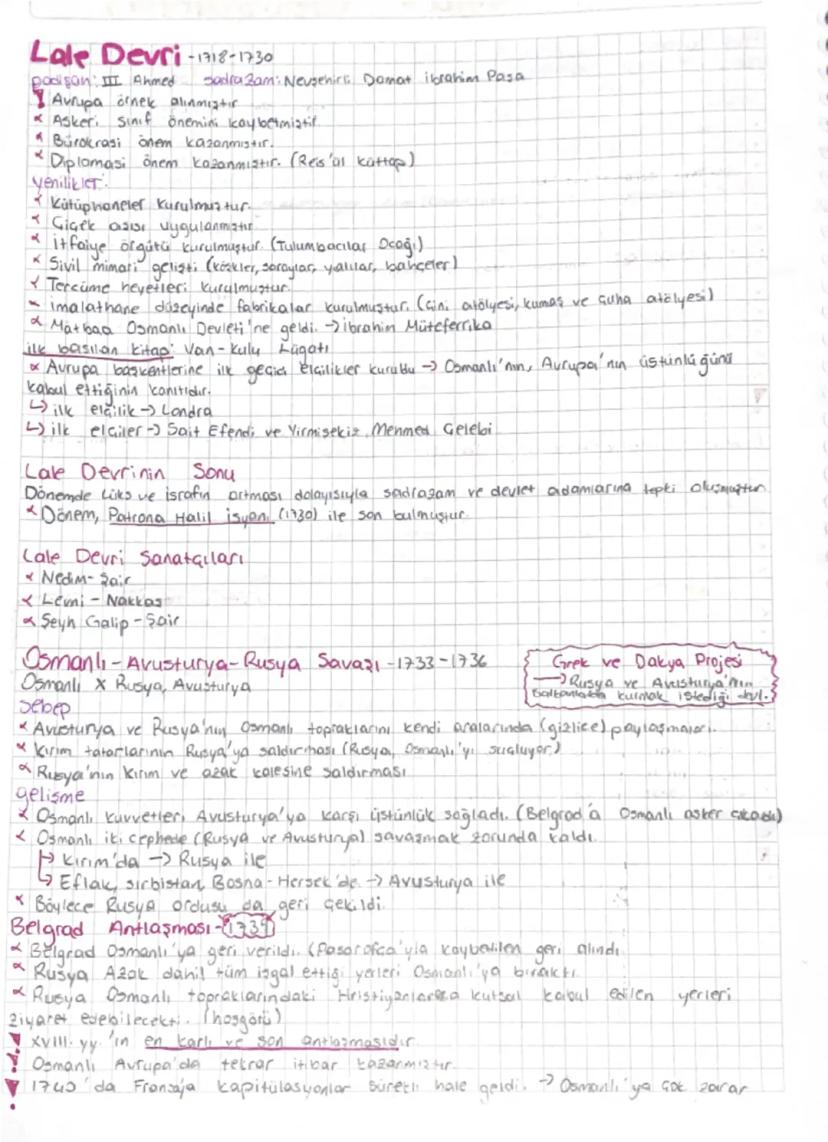 Lale Devri - 1718-1730
padişah: III Ahmed sadrazam: Nevşehirli Damat İbrahim Paşa
! Avrupa örnek alınmıştır
* Askeri sınıf önemini kaybetmiştir.
* Bürokrasi önem kazanmıştır.
* Diplomasi önem kazanmıştır. (Reis'ül küttap)
yenilikler:
* Kütüphaneler kurulmuştur.
* Çiçek aşısı uygulanmıştır.
* İtfaiye örgütü kurulmuştur. (Tulumbacılar Ocağı)
* Sivil mimari gelişti (köşkler, saraylar, yalılar, bahçeler)
* Tercüme heyetleri kurulmuştur.
* imalathane düzeyinde fabrikalar kurulmuştur. (çini atölyesi, kumaş ve çuha atölyesi)
* Matbaa Osmanlı Devleti'ne geldi. → İbrahim Müteferrika
ilk basılan kitap: Van-Kulu Lügatı
* Avrupa başkentlerine ilk geçici elçilikler kuruldu → Osmanlı'nın, Avrupa'nın üstünlüğünü
kabul ettiğinin kanıtıdır.
↳ ilk elçilik → Londra
↳ ilk elçiler → Sait Efendi ve Yirmisekiz Mehmed Çelebi
Lale Devrinin Sonu
Dönemde lüks ve israfın artması dolayısıyla sadrazam ve devlet adamlarına tepki oluşmuştur
* Dönem, Patrona Halil isyanı (1730) ile son bulmuştur.
Lale Devri Sanatçıları
* Nedim - Şair
* Levni - Nakkaş
* Şeyh Galip - Şair
Osmanlı-Avusturya-Rusya Savaşı - 1733-1736
Osmanlı X Rusya, Avusturya
Grek ve Dakya Projesi
→ Rusya ve Avusturya'nın
balkanlarda kurmak istediği devl.
sebep
* Avusturya ve Rusya'nın Osmanlı topraklarını kendi aralarında (gizlice) paylaşmaları.
* Kırım tatarlarının Rusya'ya saldırması (Rusya, Osmanlı'yı suçluyor)
* Rusya'nın kırım ve azak kalesine saldırması
gelişme
* Osmanlı kuvvetleri Avusturya'ya karşı üstünlük sağladı. (Belgrad'a Osmanlı asker çıkardı)
* Osmanlı iki cephede (Rusya ve Avusturya) savaşmak zorunda kaldı.
↳ Kırım'da → Rusya ile
↳ Eflak, sırbistan, Bosna-Hersek'de → Avusturya ile
* Böylece Rusya ordusu da geri çekildi.
Belgrad Antlaşması - 1739
* Belgrad Osmanlı'ya geri verildi. (Pasarofça'yla kaybedilen geri alındı
* Rusya Azak dahil tüm işgal ettiği yerleri Osmanlı'ya bıraktı.
* Rusya Osmanlı topraklarındaki Hristiyanlarca kutsal kabul edilen yerleri
ziyaret edebilecekti. (hoşgörü)
! XVIII. yy.'ın en karlı ve son antlaşmasıdır.
! Osmanlı Avrupa'da tekrar itibar kazanmıştır.
! 1740'da Fransaya kapitülasyonlar sürekli hale geldi. → Osmanlı'ya çok zarar